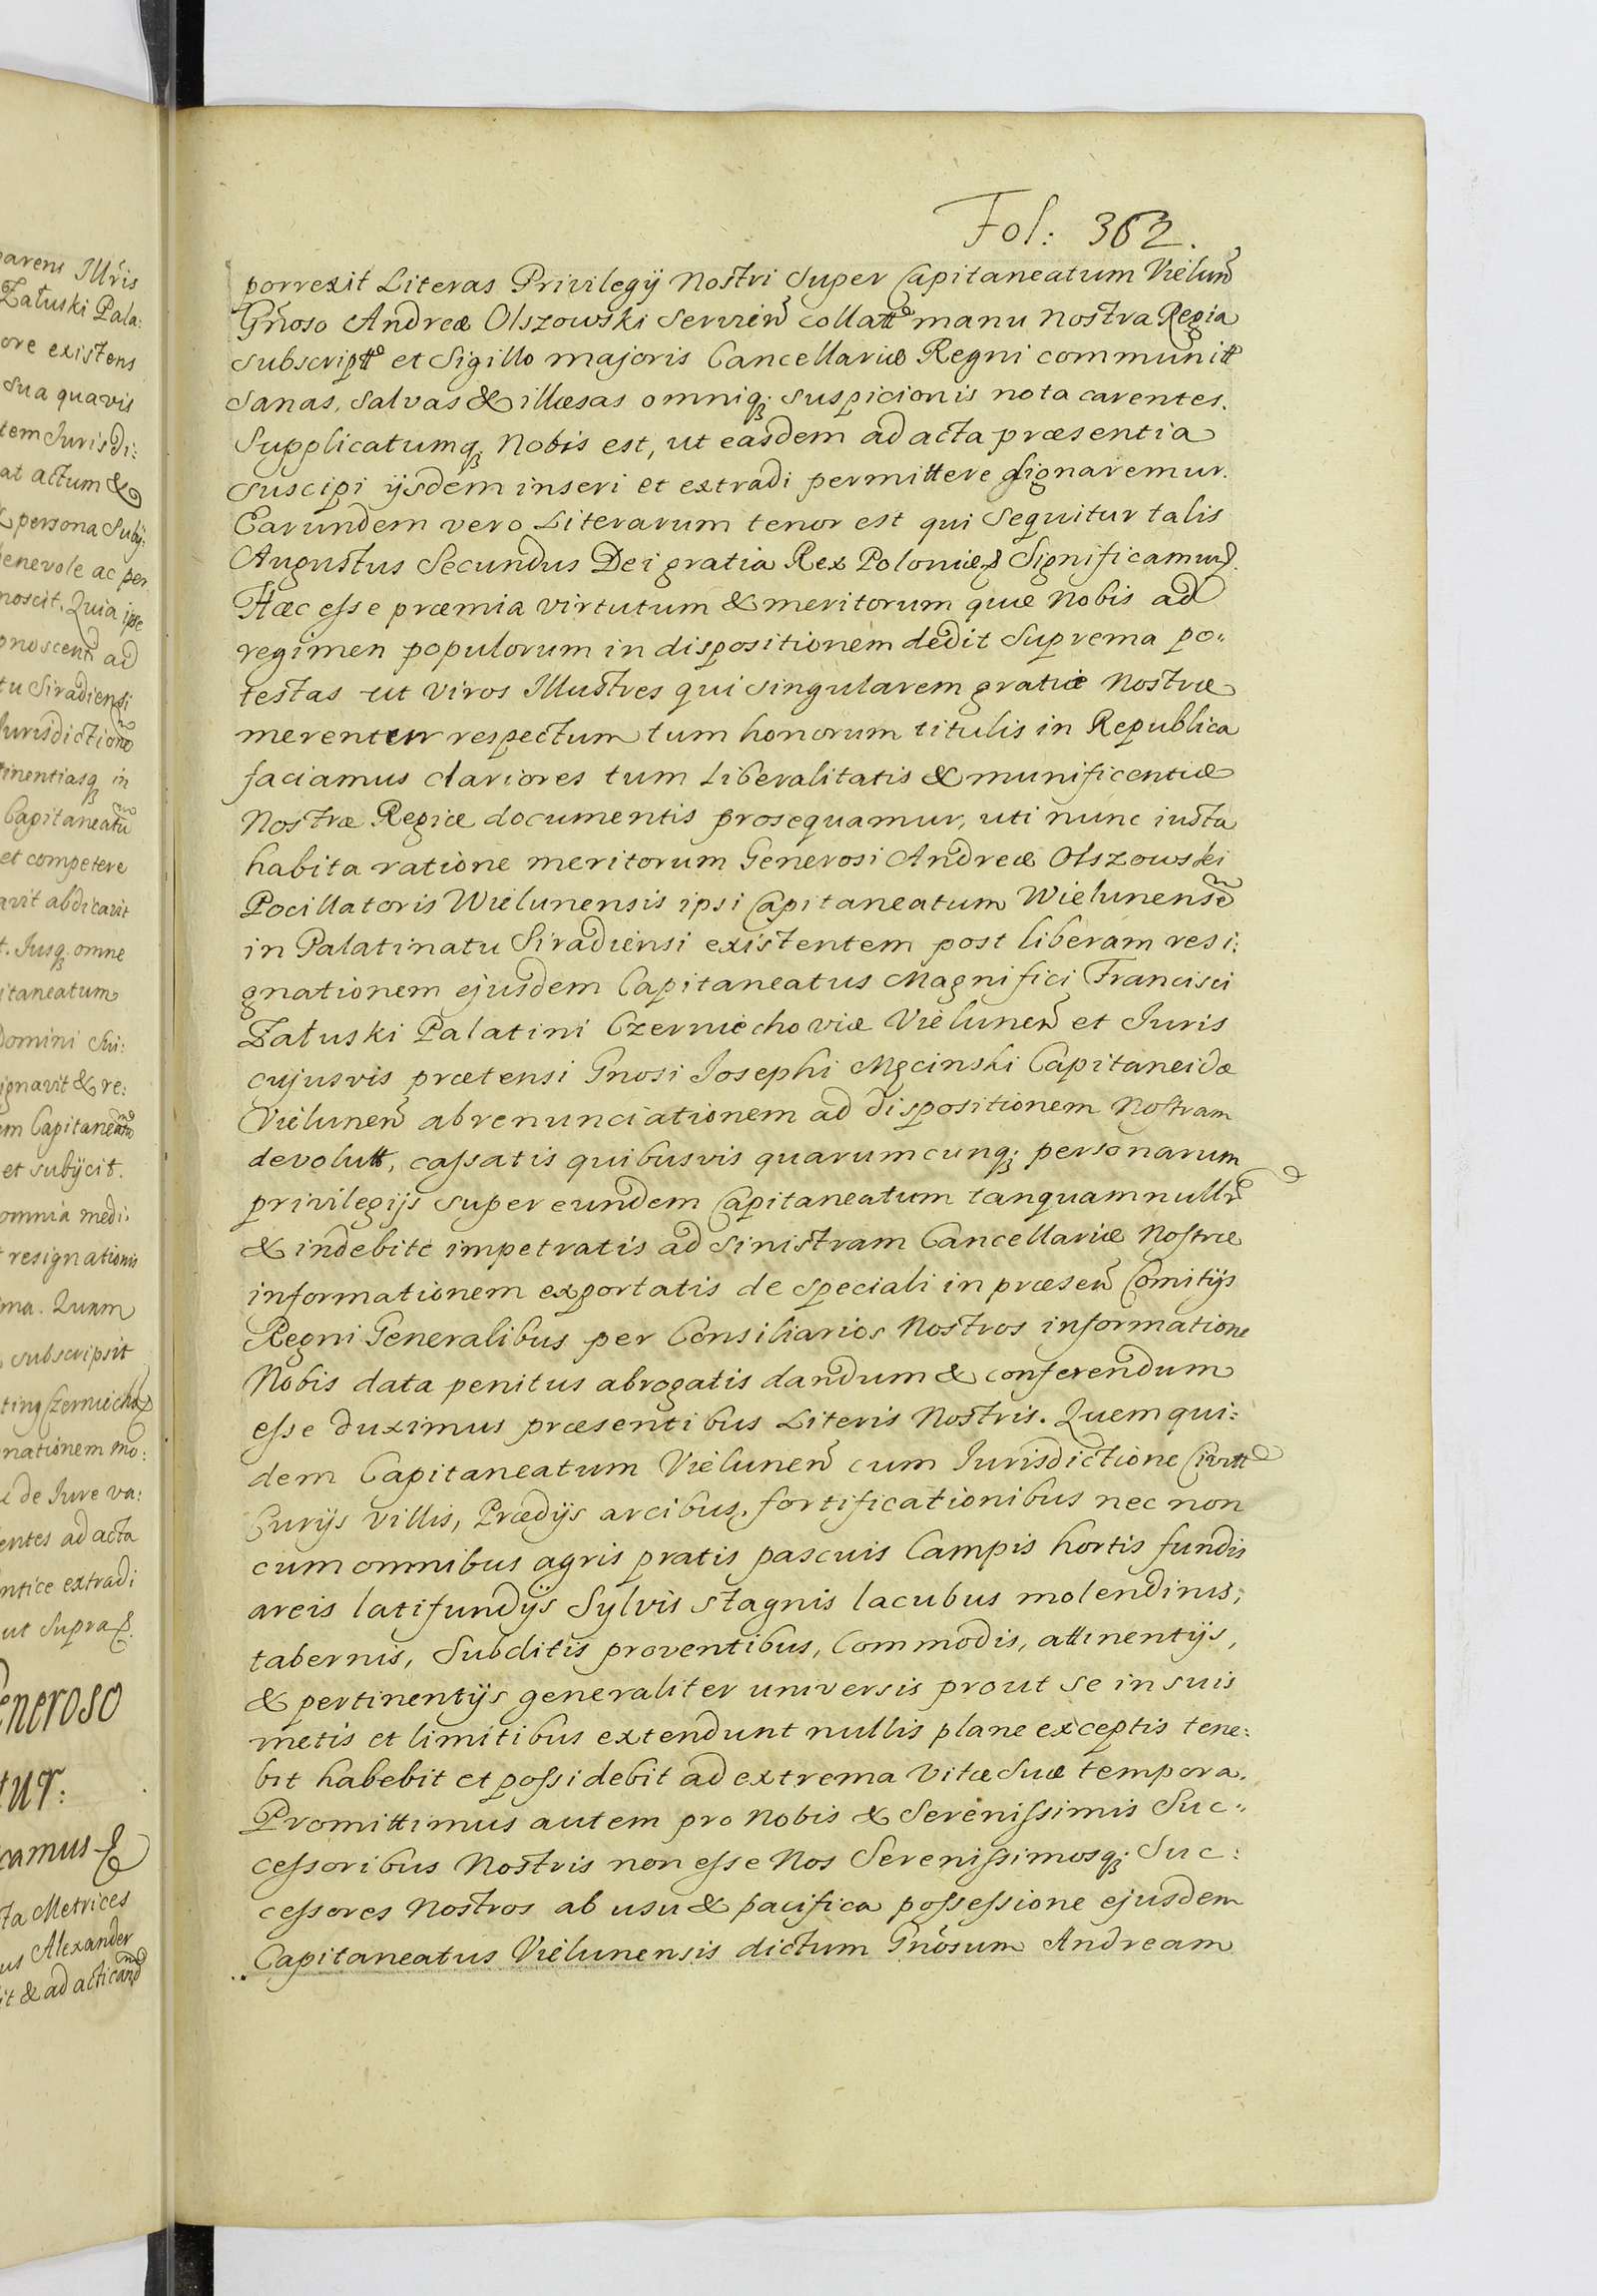 Fol: 362.
porrexit Literas Privilegij Nostri Super Capitaneatum Vielun̄
Gn̄oso Andreæ Olszowski Servien̄ collatt manu Nostra Regia
subscriptt et Sigillo majoris Cancellariæ Regni communitt
sanas, salvas & illæsas omniq; suspicionis nota carentes.
Supplicatumq; Nobis est, ut easdem ad acta præsentia
suscipi ijsdem inseri et extradi permittere dignaremur.
Earundem vero Literarum tenor est qui sequitur talis
Augustus Secundus Dei gratia Rex Poloniæ & Significamus &.
Hæc esse præmia virtutum & meritorum quæ Nobis ad
regimen populorum in dispositionem dedit Suprema po:
testas ut viros Illustres qui singularem gratiæ Nostræ
merentur respectum tum honorum titulis in Republica
faciamus clariores tum Liberalitatis & munificentiæ
Nostræ Regiæ documentis prosequamur, uti nunc iusta
habita ratione meritorum Generosi Andreæ Olszowski
Pocillatoris Wielunensis ipsi Capitaneatum Wielunense͂
in Palatinatu Siradiensi existentem post liberam resi:
gnationem ejusdem Capitaneatus Magnifici Francisci
Załuski Palatini Czerniechoviæ Vielunen̄ et Juris
cujusvis prætensi Gnosi Josephi Męcinski Capitaneidæ
Vielunen̄ abrenunciationem ad dispositionem Nostram
devolutt, cassatis quibusvis quarumcunq; personarum
privilegijs super eundem Capitaneatum tanquam nullr̄
& indebite impetratis ad sinistram Cancellariæ Nostræ
informationem exportatis de speciali in præsen̄ Comitijs
Regni Generalibus per Consiliarios Nostros informatione
Nobis data penitus abrogatis dandum & conferendum
esse duximus præsentibus Literis Nostris. Quem qui:
dem Capitaneatum Vielunen̄ cum Jurisdictione Civitt
Curijs villis, Prædijs arcibus, fortificationibus nec non
cum omnibus agris pratis pascuis Campis hortis fundis
areis latifundijs Sylvis stagnis lacubus molendinis,
tabernis, Subditis proventibus, Commodis, attinentijs,
& pertinentijs generaliter universis prout se in suis
metis et limitibus extendunt nullis plane exceptis tene:
bit habebit et possidebit ad extrema Vitæ Suæ tempora.
Promittimus autem pro Nobis & Serenissimis Suc:
cessoribus Nostris non esse Nos Serenissimosq; Suc:
cessores Nostros ab usu & pacifica possessione ejusdem
Capitaneatus Vielunensis dictum Gn̄osum Andream